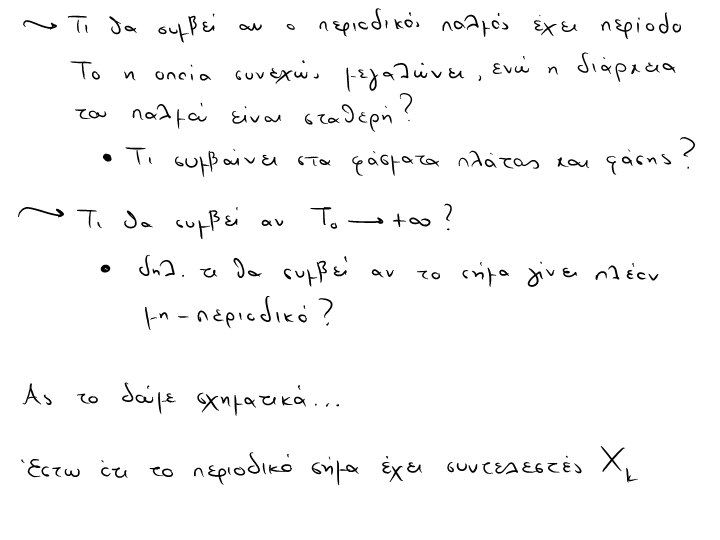 → Τι θα συμβεί αν ο περιοδικός παλμός έχει περίοδο
Το η οποία συνεχώς μεγαλώνει, ενώ η διάρκεια
του παλμού είναι σταθερή?
• Τι συμβαίνει στα φάσματα πλάτους και φάσης?
→ Τι θα συμβεί αν Το → +∞?
• δηλ. τι θα συμβεί αν το σήμα γίνει πλέον
μη-περιοδικό?
Ας το δούμε σχηματικά...
Έστω ότι το περιοδικό σήμα έχει συντελεστές Xk